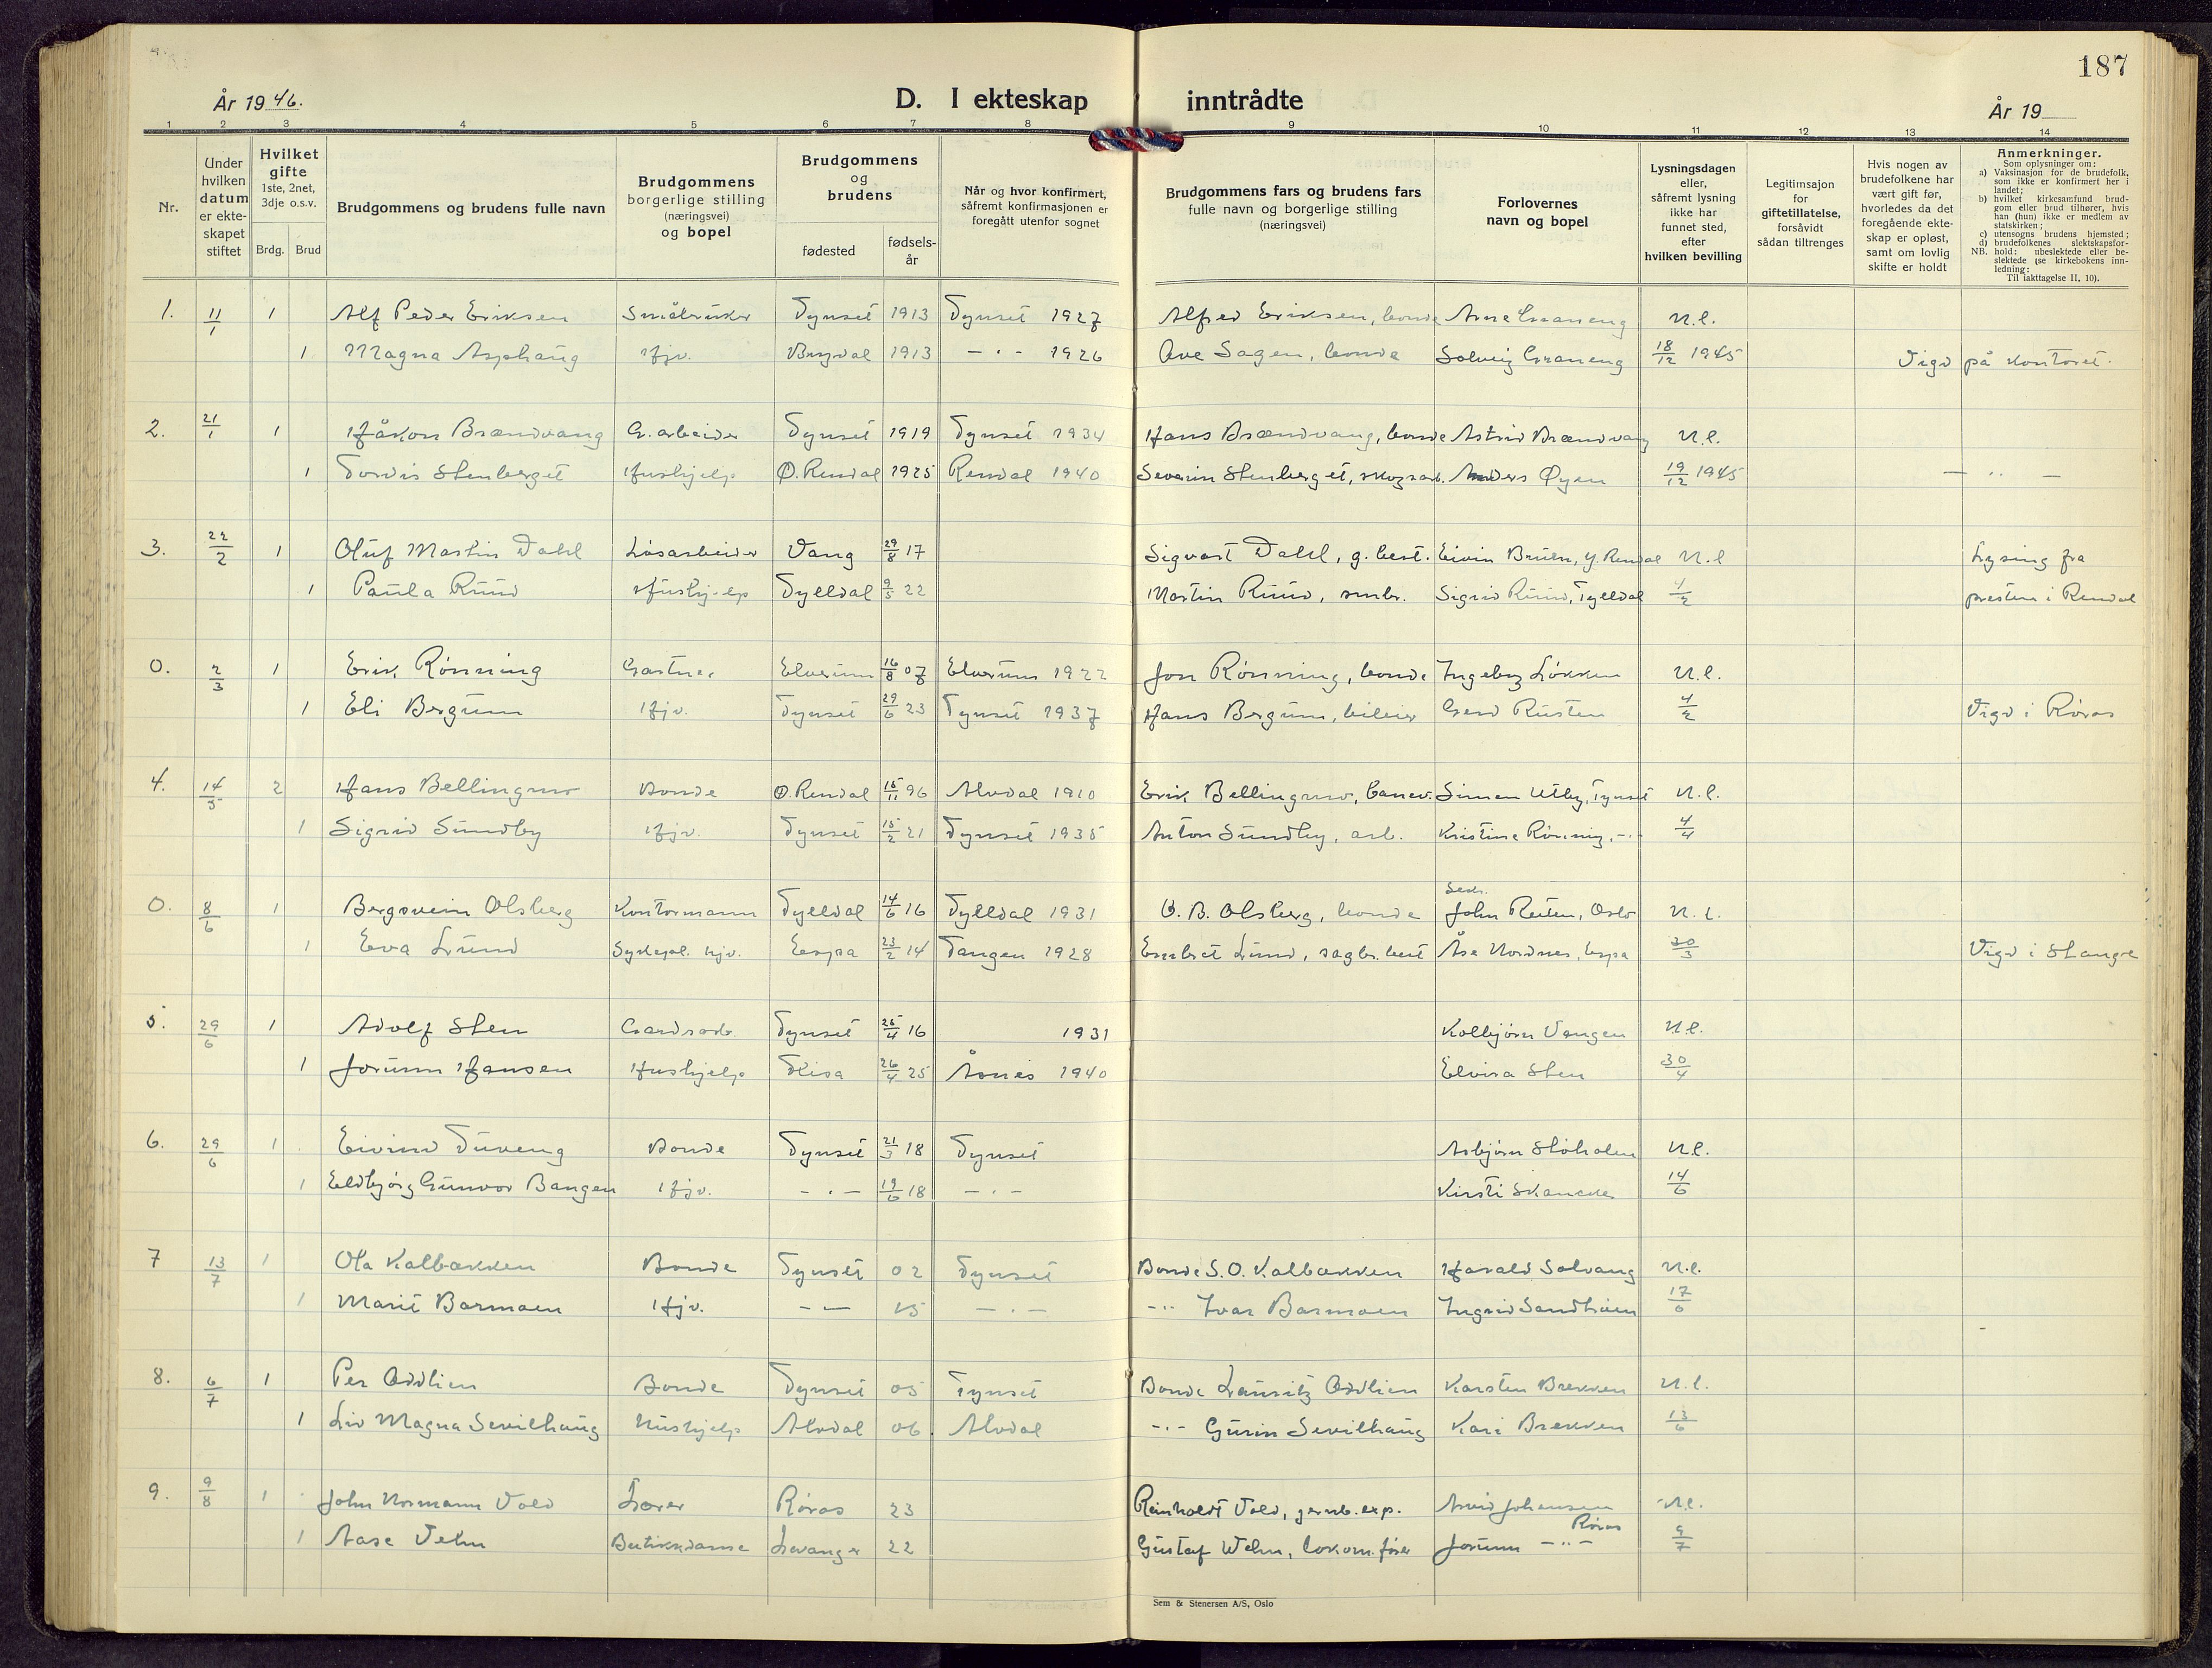 187
År 1946.
D. I ekteskap inntrådte
År 19
1 2 3 4 5 6 7 8 9 10 11 12 13 14
Nr.
Under hvilken datum er ekteskapet stiftet
Hvilket gifte 1ste, 2net, 3dje o.s.v.
Brdg. Brud
Brudgommens og brudens fulle navn
Brudgommens borgerlige stilling (næringsvei) og bopel
Brudgommens og brudens
fødested
fødselsår
Når og hvor konfirmert, såfremt konfirmasjonen er foregått utenfor sognet
Brudgommens fars og brudens fars fulle navn og borgerlige stilling (næringsvei)
Forlovernes navn og bopel
Lysningsdagen eller, såfremt lysning ikke har funnet sted, efter hvilken bevilling
Legitimsajon for giftetillatelse, forsåvidt sådan tiltrenges
Hvis nogen av brudefolkene har vært gift før, hvorledes da det foregående ekteskap er opløst, samt om lovlig skifte er holdt
Anmerkninger.
Som oplysninger om:
a) Vaksinasjon for de brudefolk, som ikke er konfirmert her i landet;
b) hvilket kirkesamfund brudgom eller brud tilhører, hvis han (hun) ikke er medlem av statskirken;
c) utensogns brudens hjemsted;
d) brudefolkenes slektskapsforhold: ubeslektede eller beslektede (se kirkebokens innledning:
NB. Til iakttagelse II, 10).
1. 11/1 1 Alf Peder Eriksen Småbruker Tynset 1913 Tynset 1927 Alfred Eriksen, bonde Arne Graneng N.l.
1 Magna Asphaug Hjv. 1913 -"- 1926 Ove Sagen, bonde Solveig Graneng 18/12 1945 Vigd på kontoret.
2. 21/1 1 Håkon Brændvang G.arbeider Tynset 1919 Tynset 1934 Hans Brændvang, bonde Astrid Brændvang N.l.
1 Tordis Stenberget Hushjelp Ø. Rendal 1925 Rendal 1940 Severin Stenberget, skogsarb. Anders Øyen 19/12 1945 - " -
3. 22/2 1 Oluf Martin Dahl Løsarbeider Vang 29/8 17 Sigvart Dahl, g. best. Eivin Bruen, Y. Rendal N.l Lysing fra
1 Paula Ruud Hushjelp Tylldal 9/5 22 Martin Ruud, smbr. Sigrid Ruud, Tylldal 1/2 presten i Rendal
0. 2/3 1 Erik Rønning Gartner Elverum 16/8 07 Elverum 1922 Jon Rønning, bonde Ingebrg Løkken N.l.
1 Eli Bergum Hjv. Tynset 29/6 23 Tynset 1937 Hans Bergum, bileier Gerd Rusten 4/2 Vigd i Røros
4. 14/5 2 Hans Bellingmo Bonde Ø. Rendal 15/11 96 Alvdal 1910 Erik Bellingmo, banev. Simen Utby, Tynset N.l.
1 Sigrid Sundby Hjv. Tynset 15/2 21 Tynset 1935 Anton Sundby, arb. Kristine Rønning, -"- 4/4
0. 8/6 1 Bergsvein Olsberg Kontormann Tylldal 14/6 16 Tylldal 1931 O. B. Olsberg, bonde Sekr. John Reiten, Oslo N.l.
1 Eva Lund Sykepl. hjv. Espa 23/2 14 Tangen 1928 Embret Lund, sagbr.best Åse Nordnes, Espa 30/3 Vigd i Stange
5. 29/6 1 Adolf Sten Gardsarb. Tynset 25/4 16 1931 Kolbjørn Vangen N.l.
1 Jorunn Hansen Hushjelp Flisa 26/4 25 Åsnes 1940 Elvira Sten 30/4
6. 29/6 1 Eivind Tuveng Bonde Tynset 21/3 18 Tynset Asbjørn Støholen N.l.
1 Eldbjørg Gunvor Bangen Hjv. -"- 19/6 18 -"- Kirsti Skancke 14/6
7 13/7 1 Ola Kalbækken Bonde Tynset 02 Tynset Bonde S. O. Kalbækken Harald Solvang N.l.
1 Marit Barmoen Hjv. -- 15 -"- -"- Ivar Barmoen Ingrid Sandtrøen 17/6
8. 6/7 1 Per Oddlien Bonde Tynset 05 Tynset Bonde Lauritz Oddlien Karsten Brekken N.l.
1 Liv Magna Sevilhaug Hushjelp Alvdal 06 Alvdal -"- Gurin Sevilhaug Kari Brekken 13/6
9. 9/8 1 John Normann Vold Lærer Røros 23 Reinholdt Vold, jernb.exp. Arvid Johansen N.l.
Røros
1 Aase Velm Butikkdame Levanger 22 Gustaf Welm, lokom.fører Jorunn -"- 9/7
Sem & Stenersen A/S, Oslo